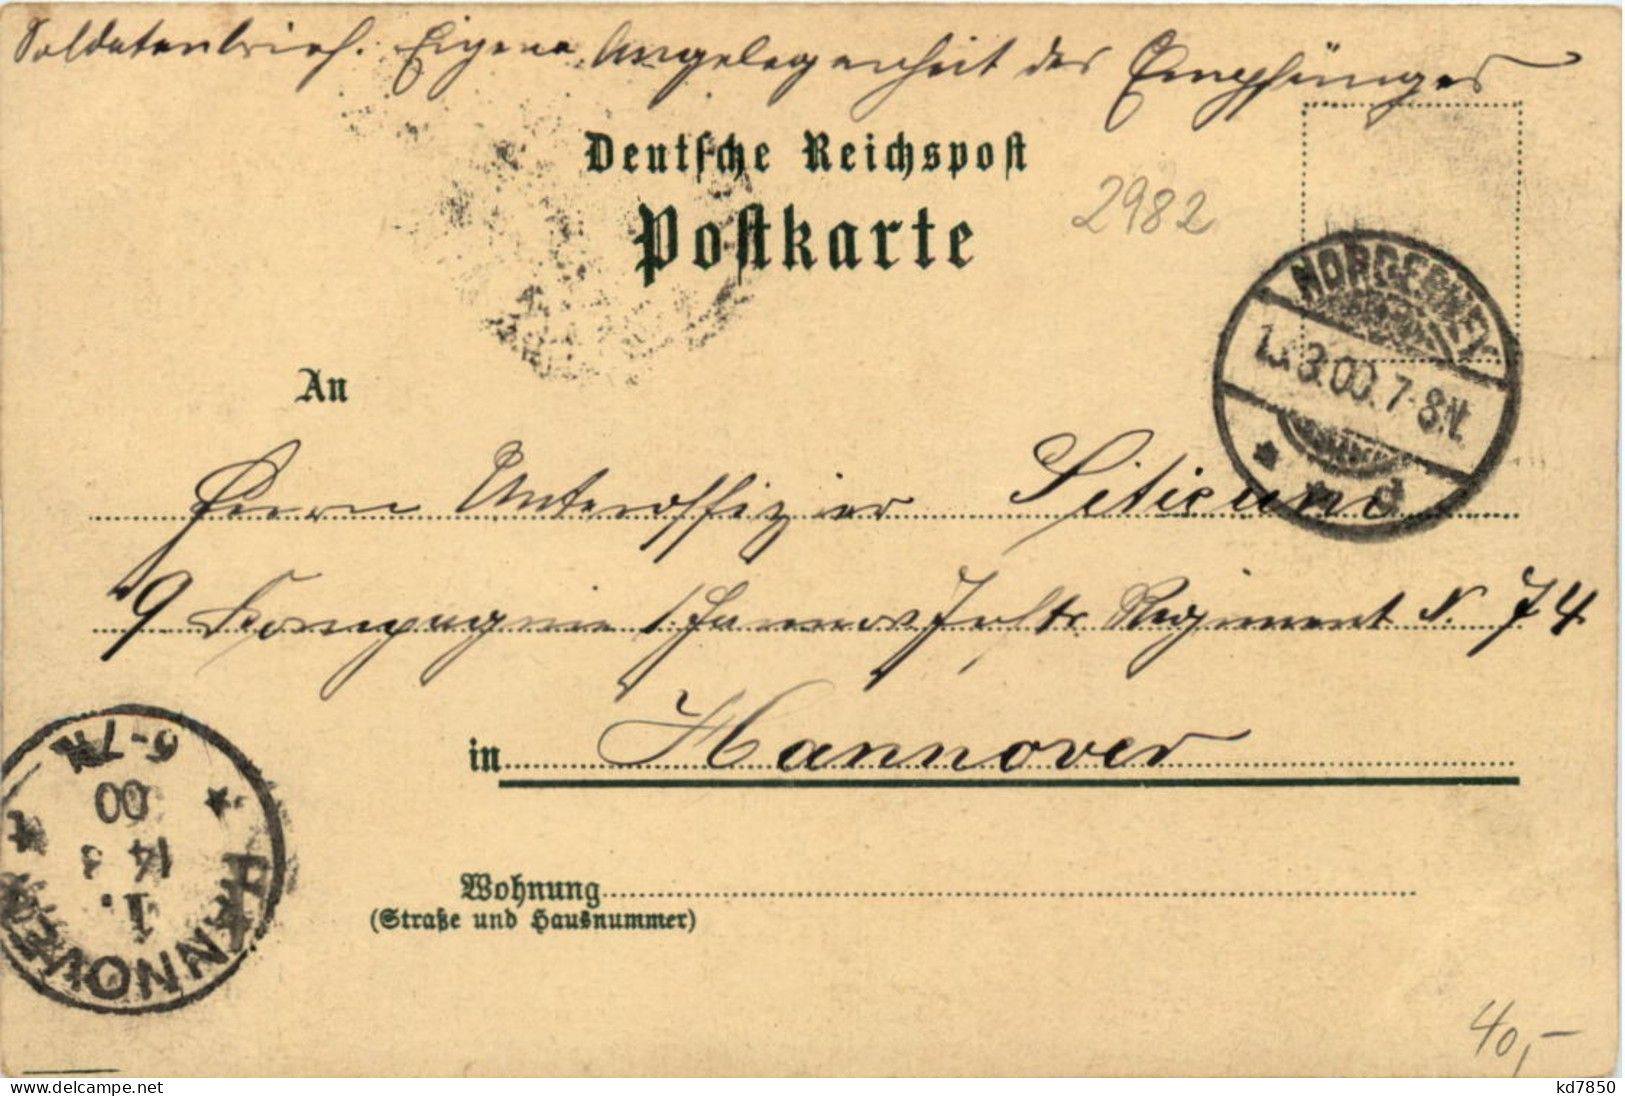 Soldatenbrief. Eigene Angelegenheit des Empfängers
Deutsche Reichspost
Postkarte
2982
NORDERNEY
13.3.00.7-8N.
d
An
Herrn Unteroffizier
9 Kompagnie 1. Hannov Inftr Regiment N. 74
in Hannover
HANNOVER
1.
14 3
00
6-7N
Wohnung
(Straße und Hausnummer)
40,-
kd7850